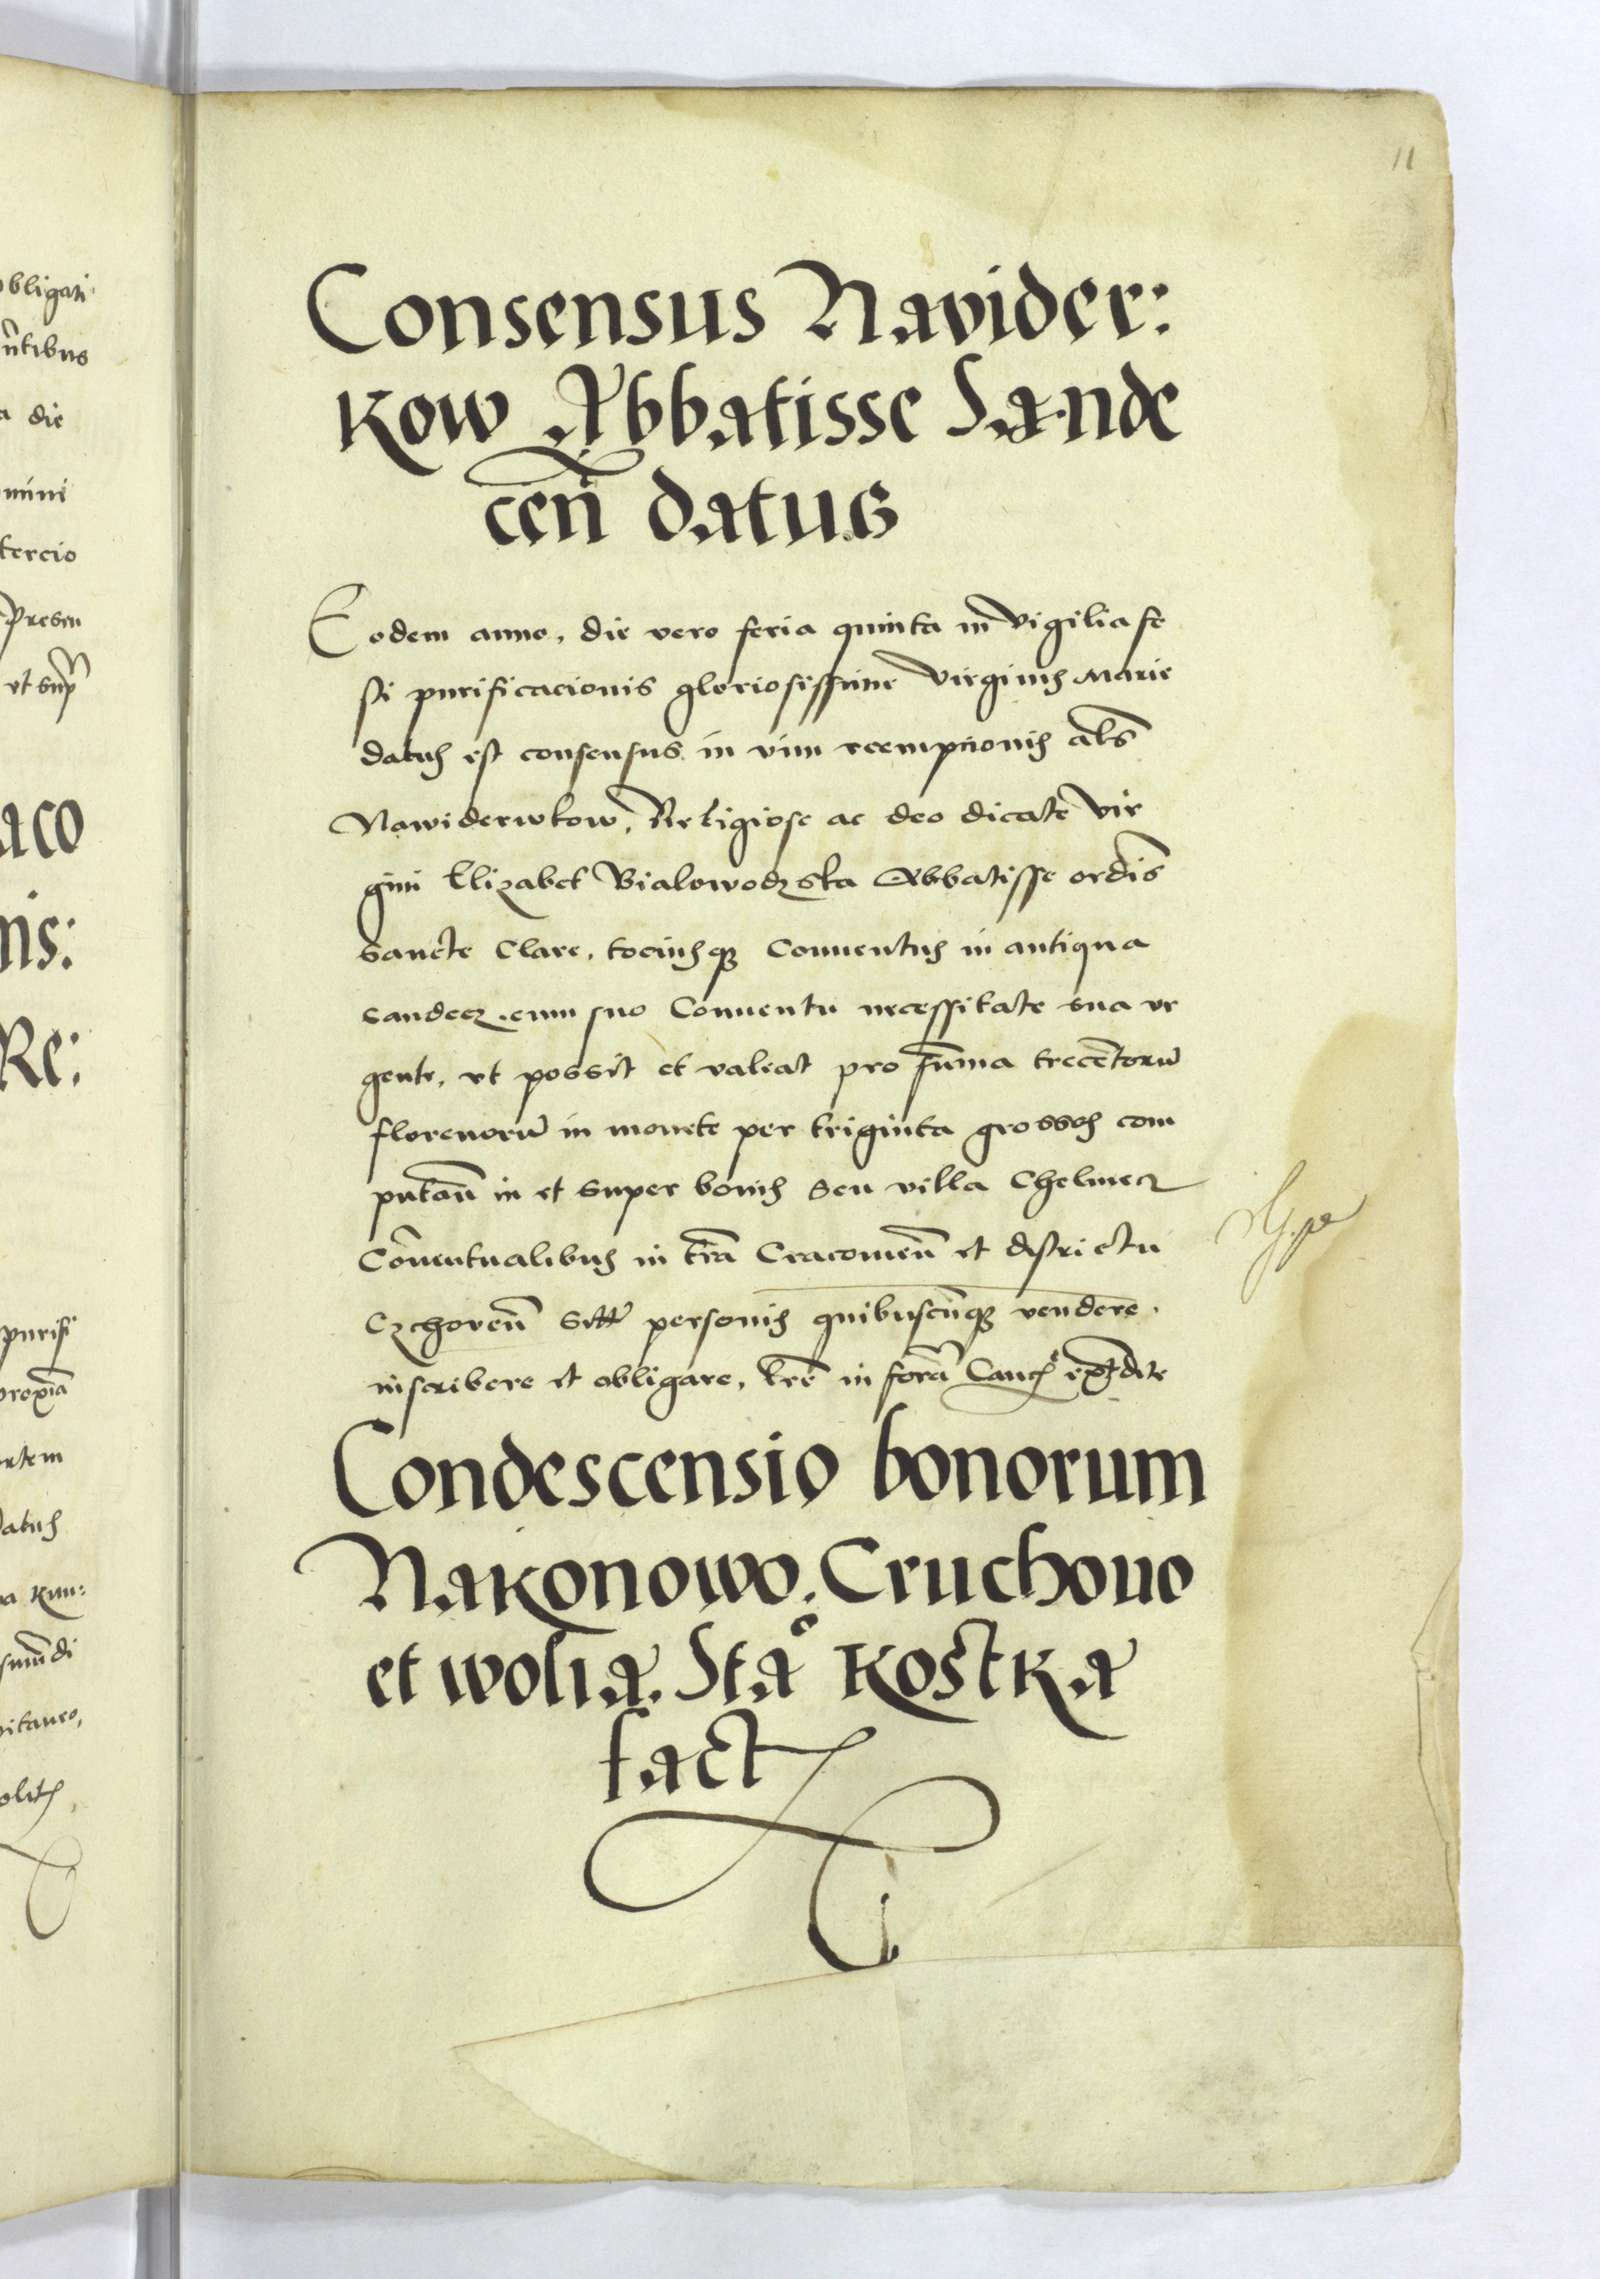 11
Consensus Navider:
kow Abbatisse Sande
cen̄ datus
Eodem anno, die vero feria quinta in vigilia fe
sti purificacionis gloriosissime virginis Marie
datus est consensus in vim reempcionis al̄s
Nawiderwkow, Religiose ac deo dicate vir
gini Elizabet Bialowodzska Abbatisse ordīs
sancte Clare, tociusq3 Conuentus in antiqua
Sandecz cum suo Conuentu necessitate sua vr
gente, vt possit et valeat pro sūma trecētorū
florenorū in monete per triginta grossos com
putan̄ in et super bonis seu villa Chelmecz
Cōuentualibus in t̄ra Cracouien̄ et districtu
Czchouen̄ sitt personis quibuscūq3 vendere,
inscribere et obligare, l̄re in forā Canc̄ exp̄edite
Condescensio bonorum
Nakonowo, Cruchouo
et wolia, Sta° Kostka
fact
obligati
n̄tibus
a die
mini
tercio
presen
vt sup̄
aco
nis:
Re:
purifi
ortem
datus
smūdi